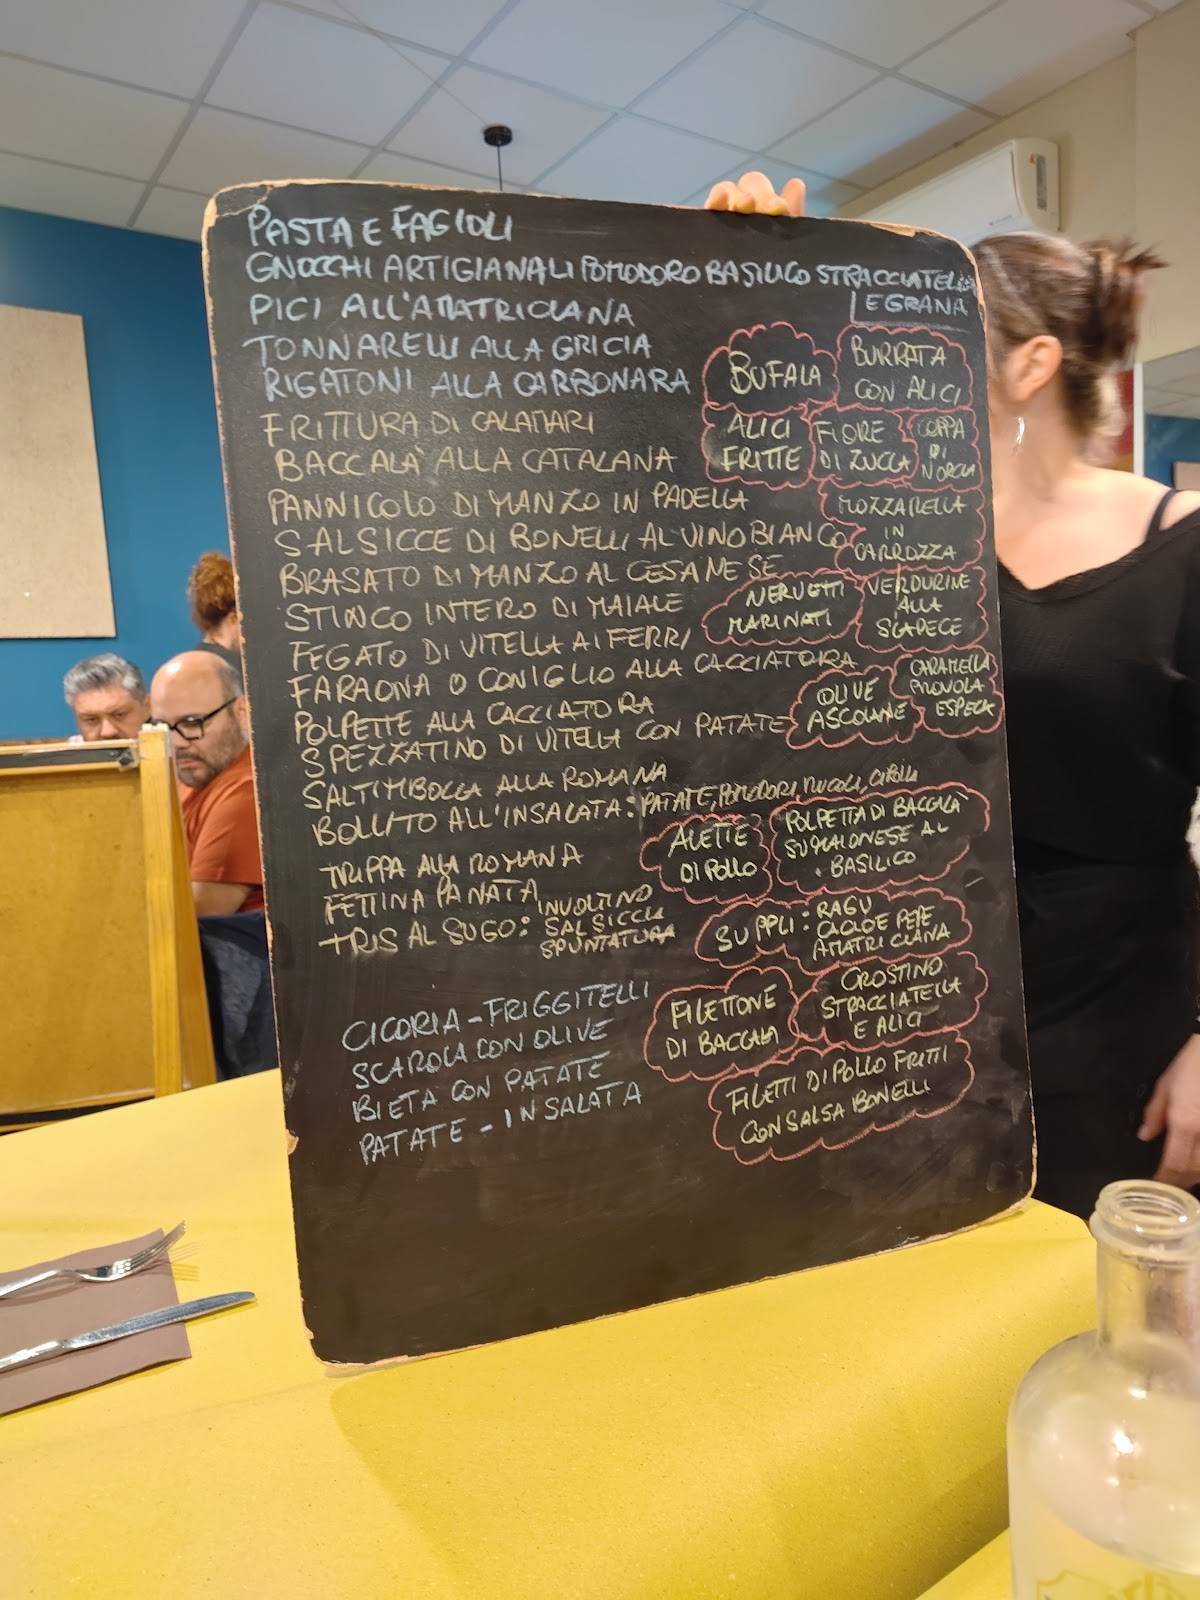 PASTA E FAGIOLI
GNOCCHI ARTIGIANALI POMODORO BASILICO STRACCIATELLA
E GRANA
PICI ALL'AMATRICIANA
TONNARELLI ALLA GRICIA
RIGATONI ALLA CARBONARA
FRITTURA DI CALAMARI
BACCALÀ ALLA CATALANA
PANNICOLO DI MANZO IN PADELLA
SALSICCE DI BONELLI AL VINO BIANCO
BRASATO DI MANZO AL CESANESE
STINCO INTERO DI MAIALE
FEGATO DI VITELLA AI FERRI
FARAONA O CONIGLIO ALLA CACCIATORA
POLPETTE ALLA CACCIATORA
SPEZZATINO DI VITELLA CON PATATE
SALTIMBOCCA ALLA ROMANA
BOLLITO ALL'INSALATA: PATATE, POMODORI, RUCOLA, CIPOLLA
TRIPPA ALLA ROMANA
FETTINA PANATA
TRIS AL SUGO: INVOLTINO
SALSICCIA
SPUNTATURA
CICORIA - FRIGGITELLI
SCAROLA CON OLIVE
BIETA CON PATATE
PATATE - INSALATA
BUFALA
BURRATA
CON ALICI
ALICI
FRITTE
FIORE
DI ZUCCA
COPPA
DI
NORCIA
MOZZARELLA
IN
CARROZZA
NERVETTI
MARINATI
VERDURINE
ALLA
SCAPECE
OLIVE
ASCOLANE
CARAMELLA
PROVOLA
E SPECK
ALETTE
DI POLLO
POLPETTA DI BACCALÀ
SU MAIONESE AL
BASILICO
SUPPLI: RAGU
CACIO E PEPE
AMATRICIANA
FILETTONE
DI BACCALA
CROSTINO
STRACCIATELLA
E ALICI
FILETTI DI POLLO FRITTI
CON SALSA BONELLI